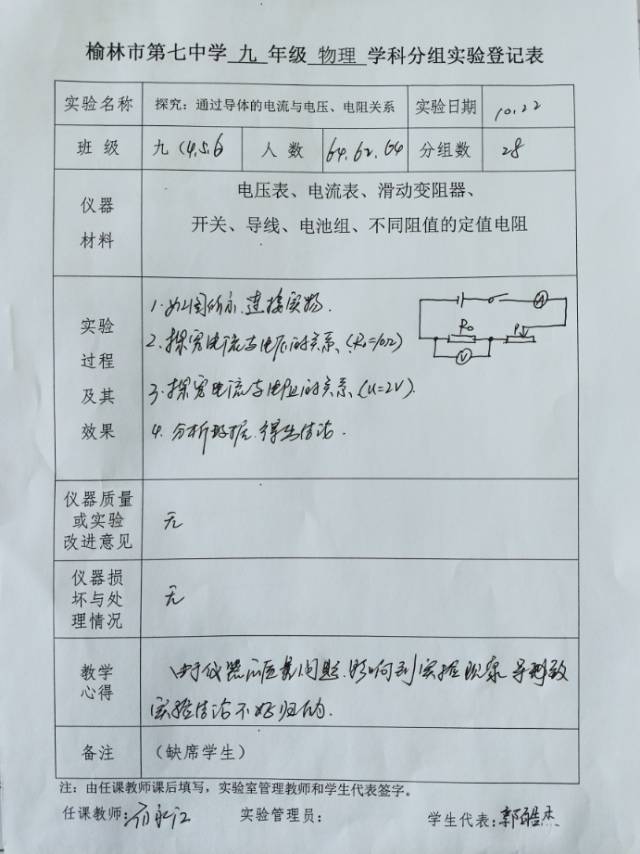 榆林市第七中学 九 年级 物理 学科分组实验登记表
实验名称 探究：通过导体的电流与电压、电阻关系 实验日期 10.22
班 级 九（4.5.6 人 数 64.62.64 分组数 28
仪器
材料
电压表、电流表、滑动变阻器、
开关、导线、电池组、不同阻值的定值电阻
实验
过程
及其
效果
1.如图所示.连接实物.
2.探究电流与电压的关系(R=10Ω)
3.探究电流与电阻的关系(U=2V).
4.分析数据.得出结论.
A
R₀
P
V
仪器质量
或实验
改进意见
无
仪器损
坏与处
理情况
无
教学
心得
由于仪器质量问题.影响到实验现象 导致
实验结论不好归纳.
备注 （缺席学生）
注：由任课教师课后填写，实验室管理教师和学生代表签字。
任课教师： 实验管理员： 学生代表：